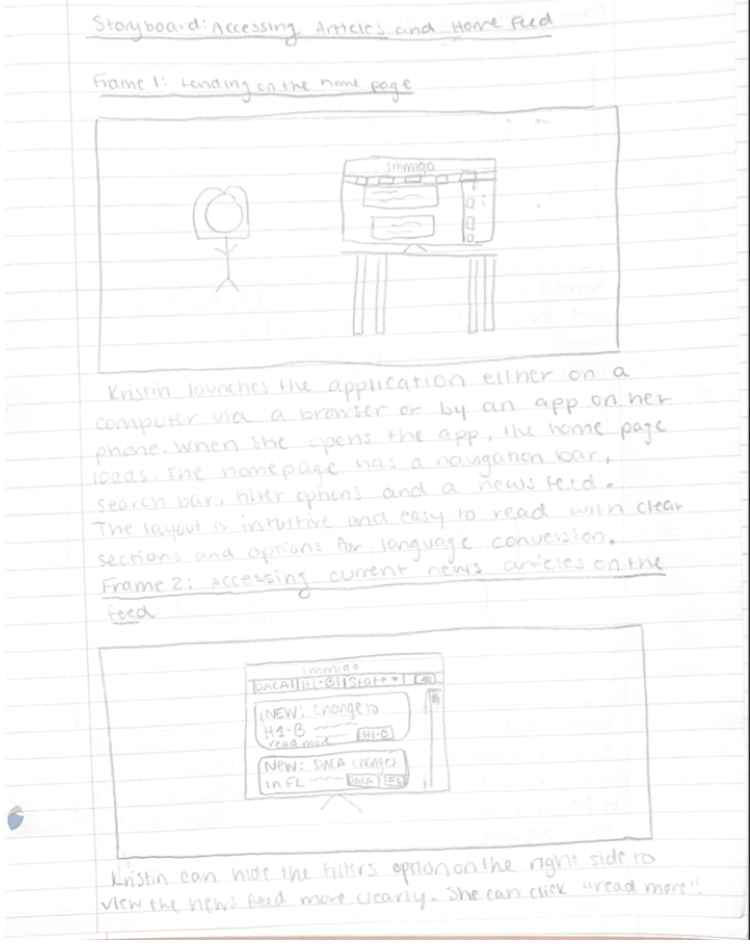 Storyboard: Accessing Articles and Home Feed
Frame 1: Landing on the home page
immigo
Kristin launches the application either on a
computer via a browser or by an app on her
phone. When she opens the app, the home page
loads. The homepage has a navigation bar,
search bar, filter options and a news feed.
The layout is intuitive and easy to read with clear
sections and options for language conversion.
Frame 2: Accessing current news articles on the
feed
immigo
DACA H1-B State
NEW: Change to
H1-B
read more H1-B
New: DACA changes
in FL DACA FL
Kristin can hide the filters option on the right side to
view the news feed more clearly. She can click "read more".